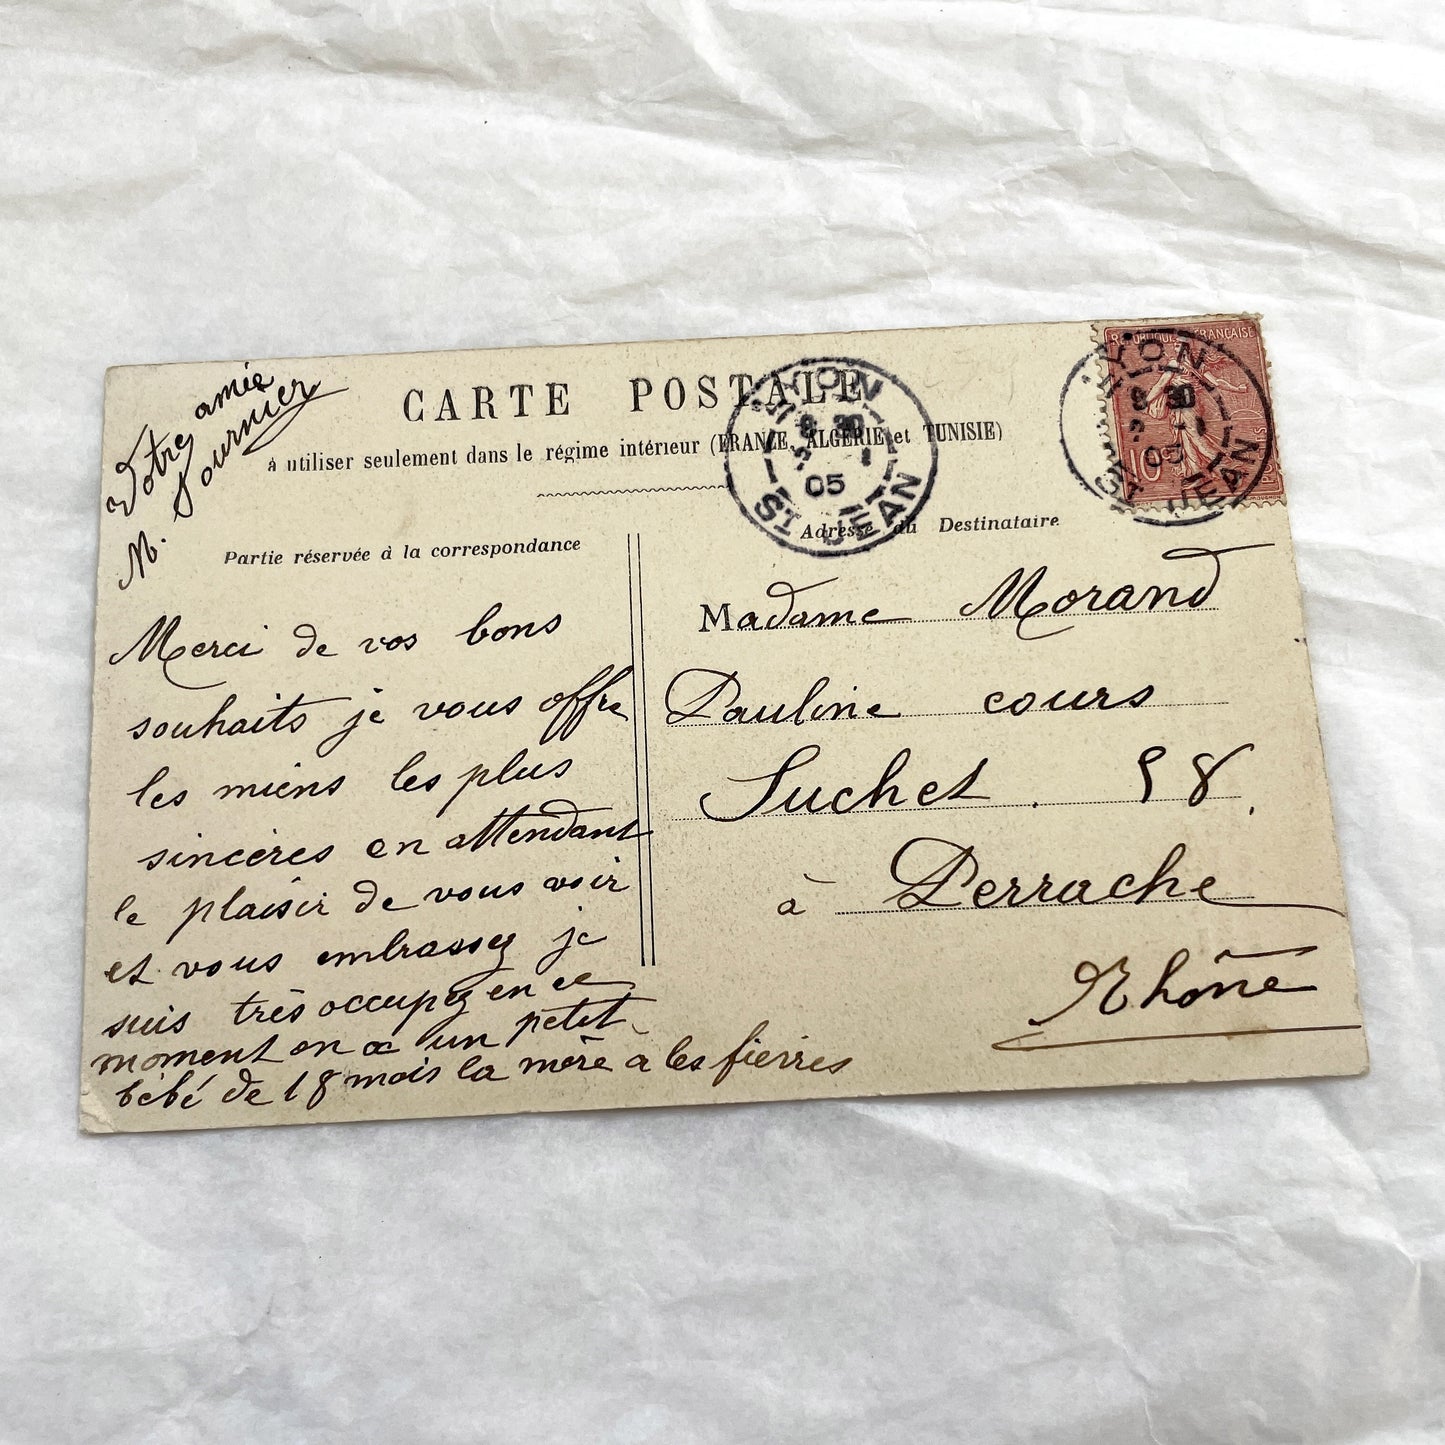 CARTE POSTALE
à utiliser seulement dans le régime intérieur (FRANCE, ALGÉRIE et TUNISIE)
Partie réservée à la correspondance
Adresse du Destinataire
Votre amie
M. Fournier
Merci de vos bons
souhaits je vous offre
les miens les plus
sincères en attendant
le plaisir de vous voir
et vous embrassez je
suis très occupez en ce
moment on a un petit
bébé de 18 mois la mère a les fierres
Madame Morand
Pauline cours
Suchet. 58.
à Perrache
Rhône
LYON
8 30
5 - 1
05
ST JEAN
REPUBLIQUE FRANÇAISE
10c
LYON
8 30
05
ST JEAN